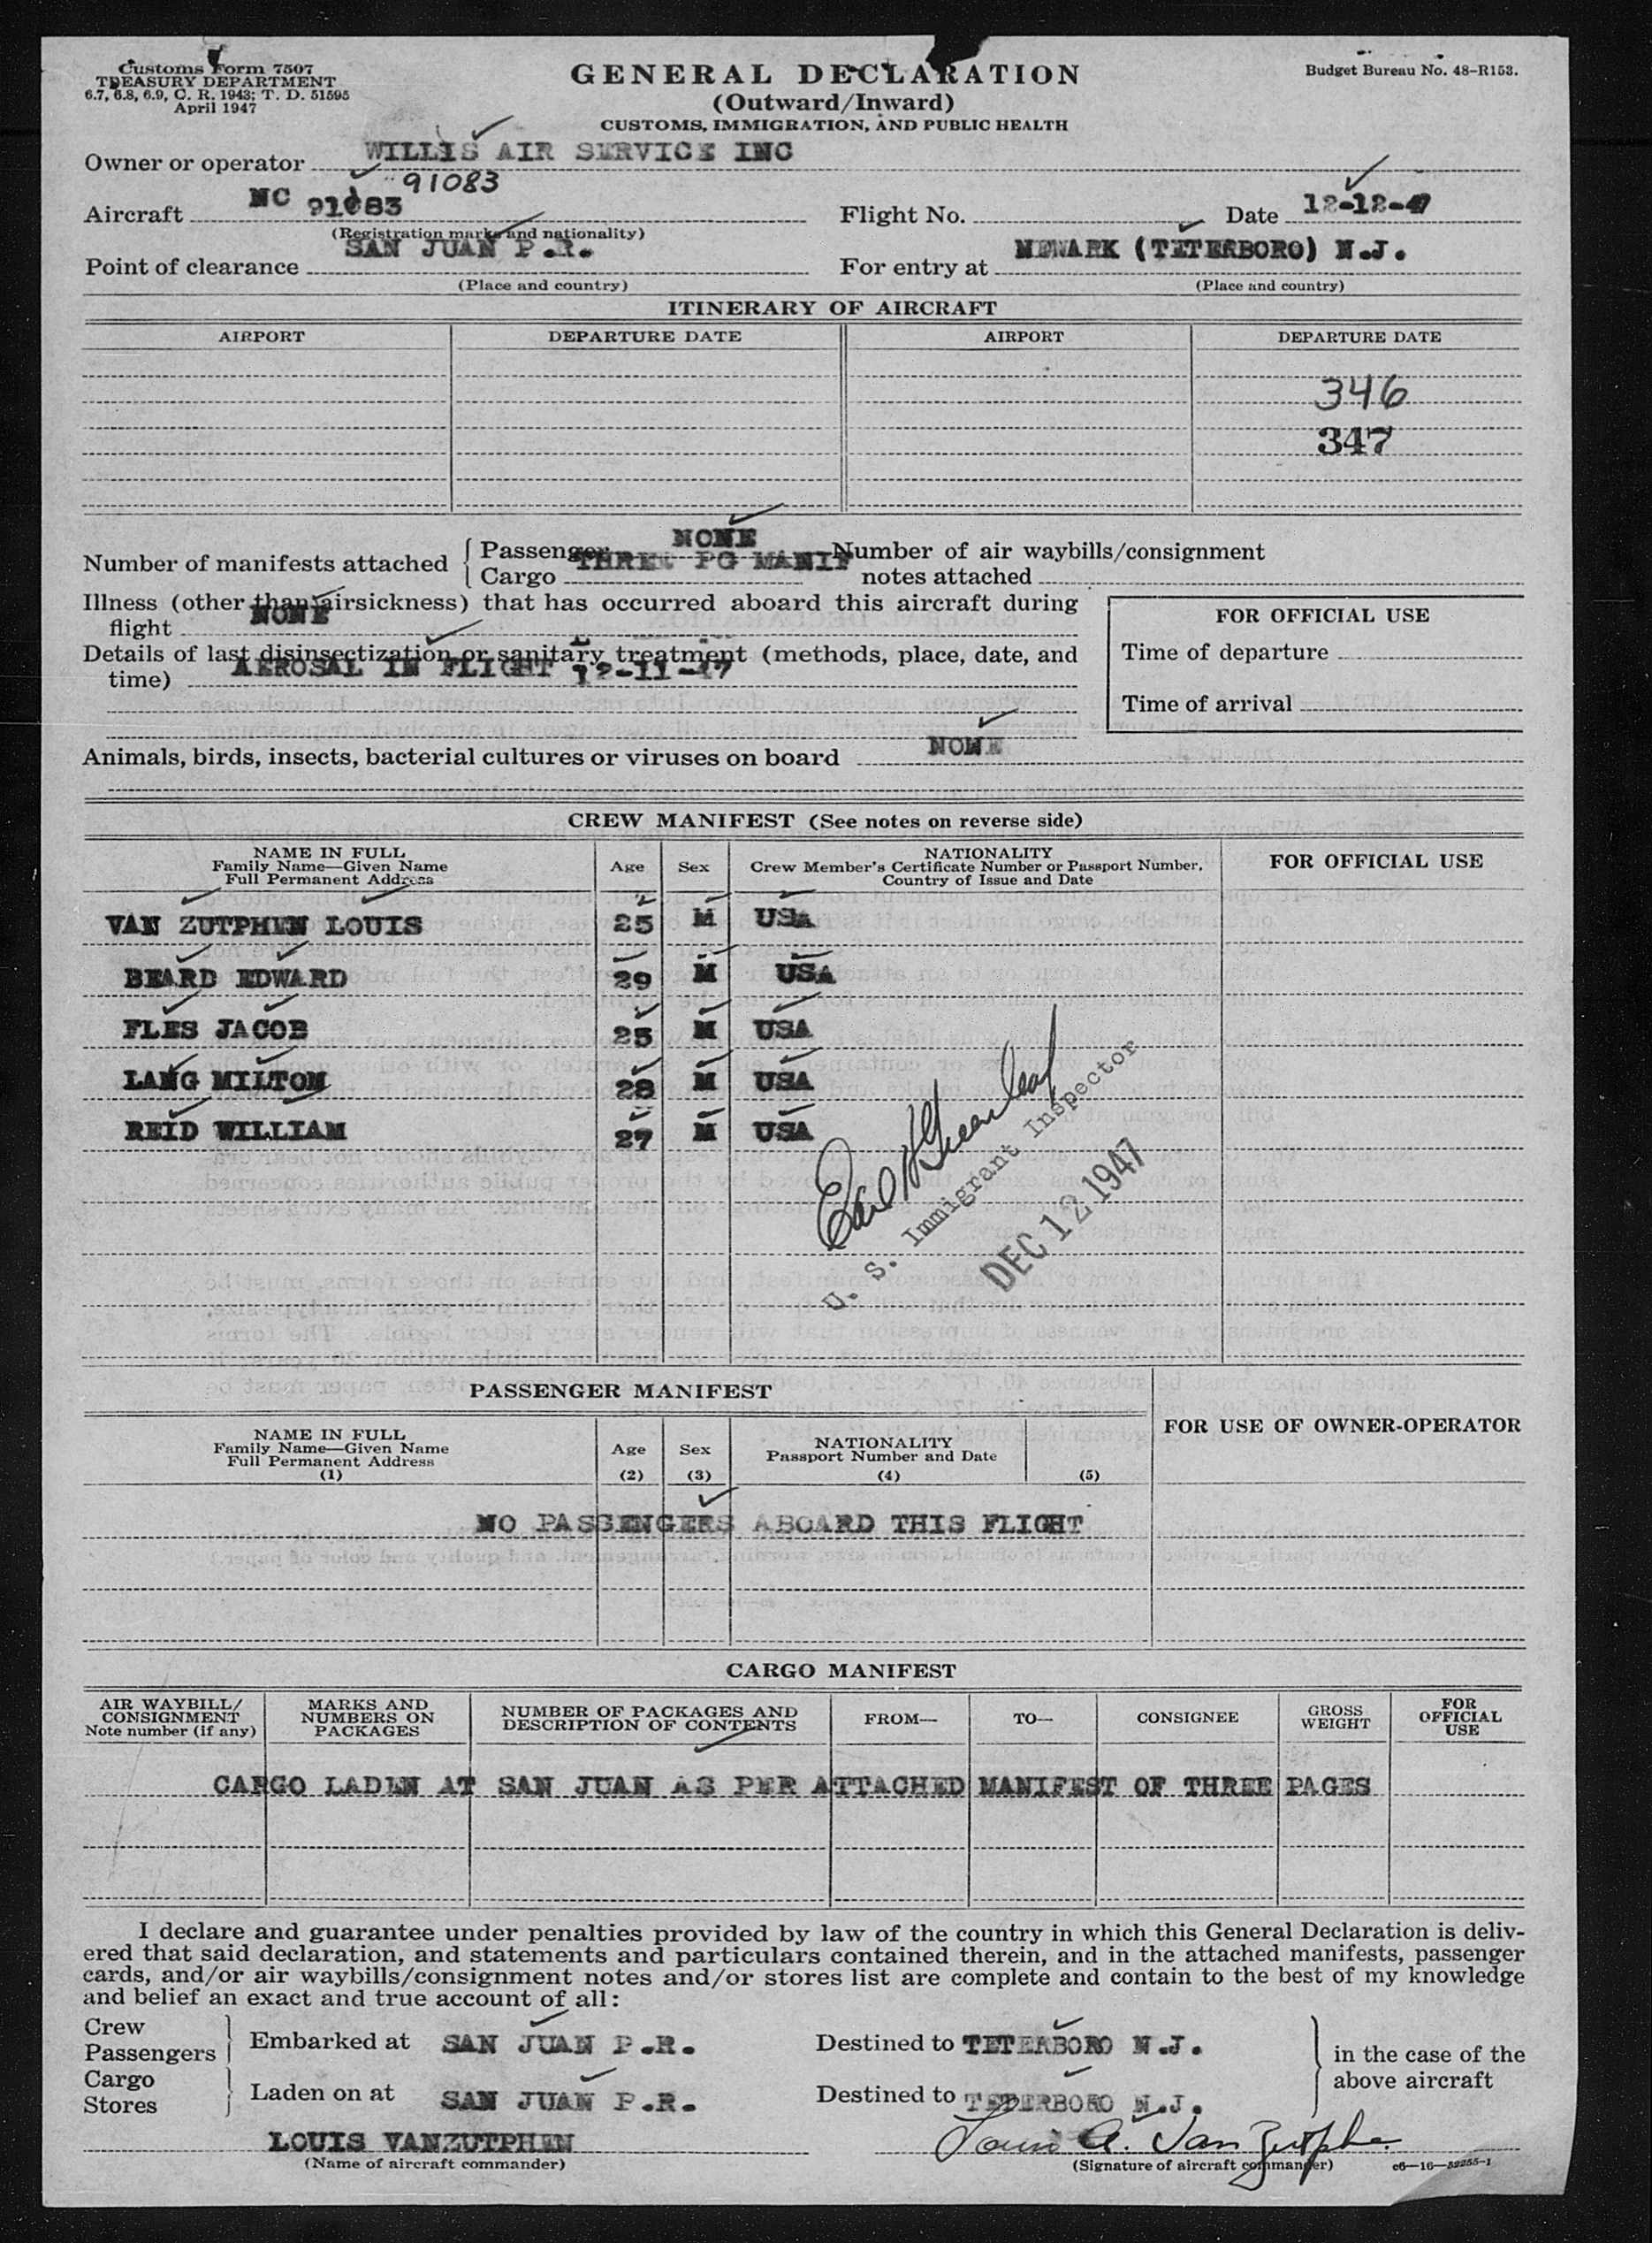 Customs Form 7507
TREASURY DEPARTMENT
6.7, 6.8, 6.9, C. R. 1943; T. D. 51595
April 1947
GENERAL DECLARATION
(Outward/Inward)
CUSTOMS, IMMIGRATION, AND PUBLIC HEALTH
Budget Bureau No. 48-R153.
Owner or operator WILLIS AIR SERVICE INC
Aircraft NC 91083 "91083 Flight No. Date 12-12-47
(Registration marks and nationality)
Point of clearance SAN JUAN P.R. For entry at NEWARK (TETERBORO) N.J.
(Place and country) (Place and country)
ITINERARY OF AIRCRAFT
AIRPORT DEPARTURE DATE AIRPORT DEPARTURE DATE
346
347
Number of manifests attached Passenger NONE Number of air waybills/consignment
Cargo THREE PG MANIF notes attached
Illness (other than airsickness) that has occurred aboard this aircraft during
flight NONE
Details of last disinsectization or sanitary treatment (methods, place, date, and
time) AEROSAL IN FLIGHT 12-11-47
FOR OFFICIAL USE
Time of departure
Time of arrival
Animals, birds, insects, bacterial cultures or viruses on board NONE
CREW MANIFEST (See notes on reverse side)
NAME IN FULL
Family Name—Given Name
Full Permanent Address
Age Sex
NATIONALITY
Crew Member's Certificate Number or Passport Number,
Country of Issue and Date
FOR OFFICIAL USE
VAN ZUTPHEN LOUIS 25 M USA
BEARD EDWARD 29 M USA
FLES JACOB 25 M USA
LANG MILTON 28 M USA
REID WILLIAM 27 M USA
Earl H Greenleaf
U. S. Immigrant Inspector
DEC 12 1947
PASSENGER MANIFEST
NAME IN FULL
Family Name—Given Name
Full Permanent Address
(1)
Age
(2)
Sex
(3)
NATIONALITY
Passport Number and Date
(4)
(5)
FOR USE OF OWNER-OPERATOR
NO PASSENGERS ABOARD THIS FLIGHT
CARGO MANIFEST
AIR WAYBILL/
CONSIGNMENT
Note number (if any)
MARKS AND
NUMBERS ON
PACKAGES
NUMBER OF PACKAGES AND
DESCRIPTION OF CONTENTS
FROM—
TO—
CONSIGNEE
GROSS
WEIGHT
FOR
OFFICIAL
USE
CARGO LADEN AT SAN JUAN AS PER ATTACHED MANIFEST OF THREE PAGES
I declare and guarantee under penalties provided by law of the country in which this General Declaration is deliv-
ered that said declaration, and statements and particulars contained therein, and in the attached manifests, passenger
cards, and/or air waybills/consignment notes and/or stores list are complete and contain to the best of my knowledge
and belief an exact and true account of all:
Crew
Passengers
Embarked at SAN JUAN P.R. Destined to TETERBORO N.J.
Cargo
Stores
Laden on at SAN JUAN P.R. Destined to TETERBORO N.J.
in the case of the
above aircraft
LOUIS VANZUTPHEN Louis A. Van Zutphen
(Name of aircraft commander) (Signature of aircraft commander) c6—16—52255-1